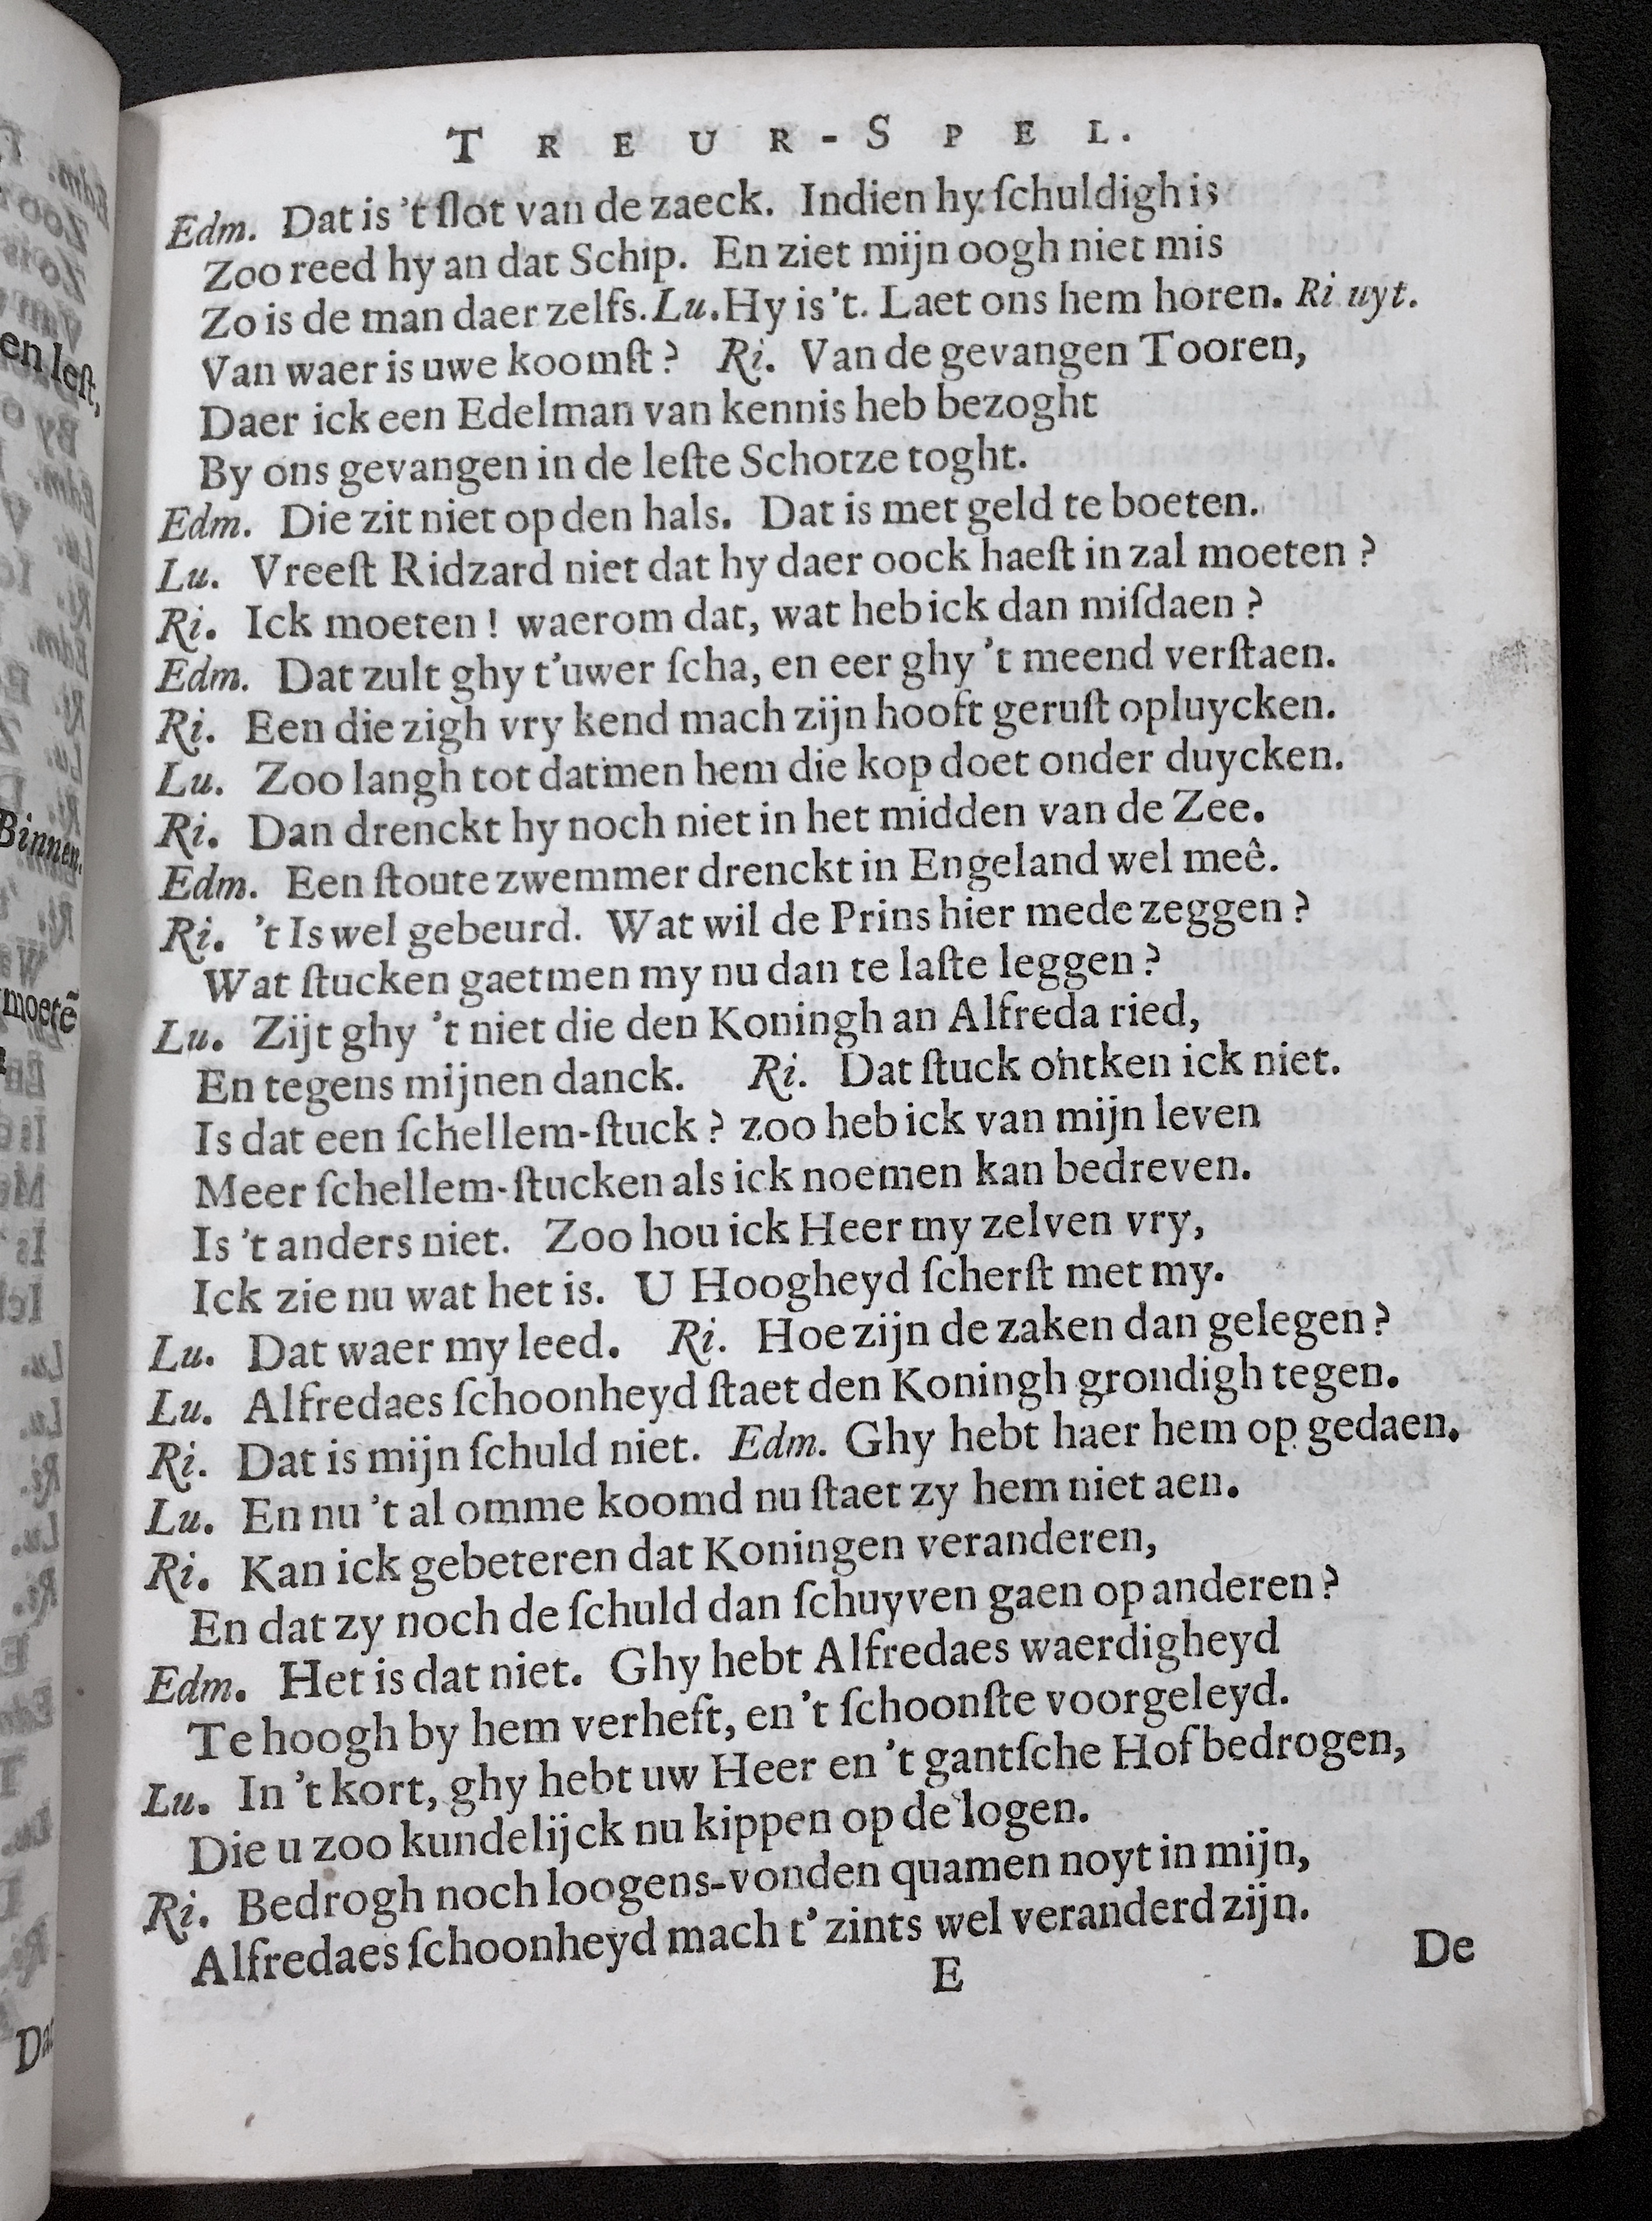 TREUR-SPEL.
Edm. Dat is 't ſlot van de zaeck. Indien hy ſchuldigh is
Zoo reed hy an dat Schip. En ziet mijn oogh niet mis
Zo is de man daer zelfs. Lu. Hy is 't. Laet ons hem horen. Ri uyt.
Van waer is uwe koomſt? Ri. Van de gevangen Tooren,
Daer ick een Edelman van kennis heb bezoght
By ons gevangen in de leſte Schotze toght.
Edm. Die zit niet op den hals. Dat is met geld te boeten.
Lu. Vreeſt Ridzard niet dat hy daer oock haeſt in zal moeten?
Ri. Ick moeten! waerom dat, wat heb ick dan miſdaen?
Edm. Dat zult ghy t'uwer ſcha, en eer ghy 't meend verſtaen.
Ri. Een die zigh vry kend mach zijn hooft geruſt opluycken.
Lu. Zoo langh tot datmen hem die kop doet onder duycken.
Ri. Dan drenckt hy noch niet in het midden van de Zee.
Edm. Een ſtoute zwemmer drenckt in Engeland wel meê.
Ri. 't Is wel gebeurd. Wat wil de Prins hier mede zeggen?
Wat ſtucken gaetmen my nu dan te laſte leggen?
Lu. Zijt ghy 't niet die den Koningh an Alfreda ried,
En tegens mijnen danck. Ri. Dat ſtuck ontken ick niet.
Is dat een ſchellem-ſtuck? zoo heb ick van mijn leven
Meer ſchellem-ſtucken als ick noemen kan bedreven.
Is 't anders niet. Zoo hou ick Heer my zelven vry,
Ick zie nu wat het is. U Hoogheyd ſcherſt met my.
Lu. Dat waer my leed. Ri. Hoe zijn de zaken dan gelegen?
Lu. Alfredaes ſchoonheyd ſtaet den Koningh grondigh tegen.
Ri. Dat is mijn ſchuld niet. Edm. Ghy hebt haer hem op gedaen.
Lu. En nu 't al omme koomd nu ſtaet zy hem niet aen.
Ri. Kan ick gebeteren dat Koningen veranderen,
En dat zy noch de ſchuld dan ſchuyven gaen op anderen?
Edm. Het is dat niet. Ghy hebt Alfredaes waerdigheyd
Te hoogh by hem verheft, en 't ſchoonſte voorgeleyd.
Lu. In 't kort, ghy hebt uw Heer en 't gantſche Hof bedrogen,
Die u zoo kundelijck nu kippen op de logen.
Ri. Bedrogh noch loogens-vonden quamen noyt in mijn,
Alfredaes ſchoonheyd mach t' zints wel veranderd zijn.
E
De